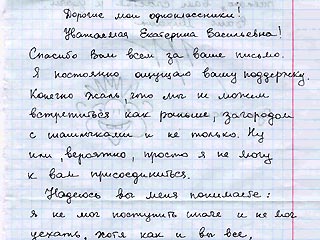 Дорогие мои одноклассники!
Уважаемая Екатерина Васильевна!
Спасибо Вам всем за ваше письмо.
Я постоянно ощущаю вашу поддержку.
Конечно жаль, что мы не можем
встретиться как раньше, загородом
с шашлычками и не только. Ну
или, вероятно, просто я не могу
к вам присоединиться.
Надеюсь вы меня понимаете:
я не мог поступить иначе и не мог
уехать, хотя как и вы все,